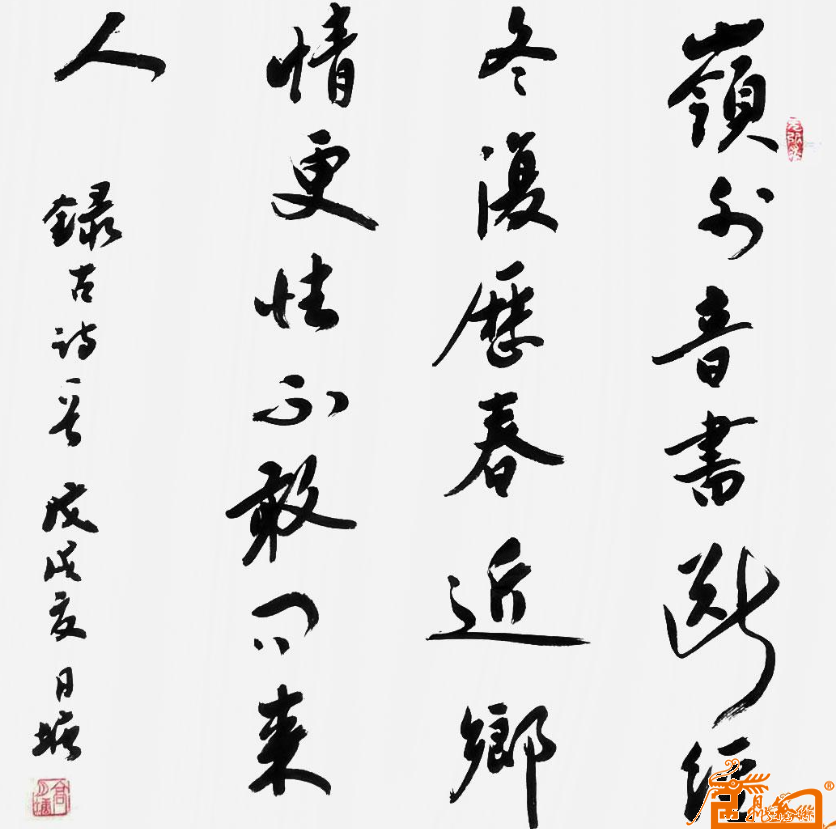 嶺外音書斷經
冬復歷春近鄉
情更怯不敢問來
人 錄古詩一首 戊戌夏 月塘